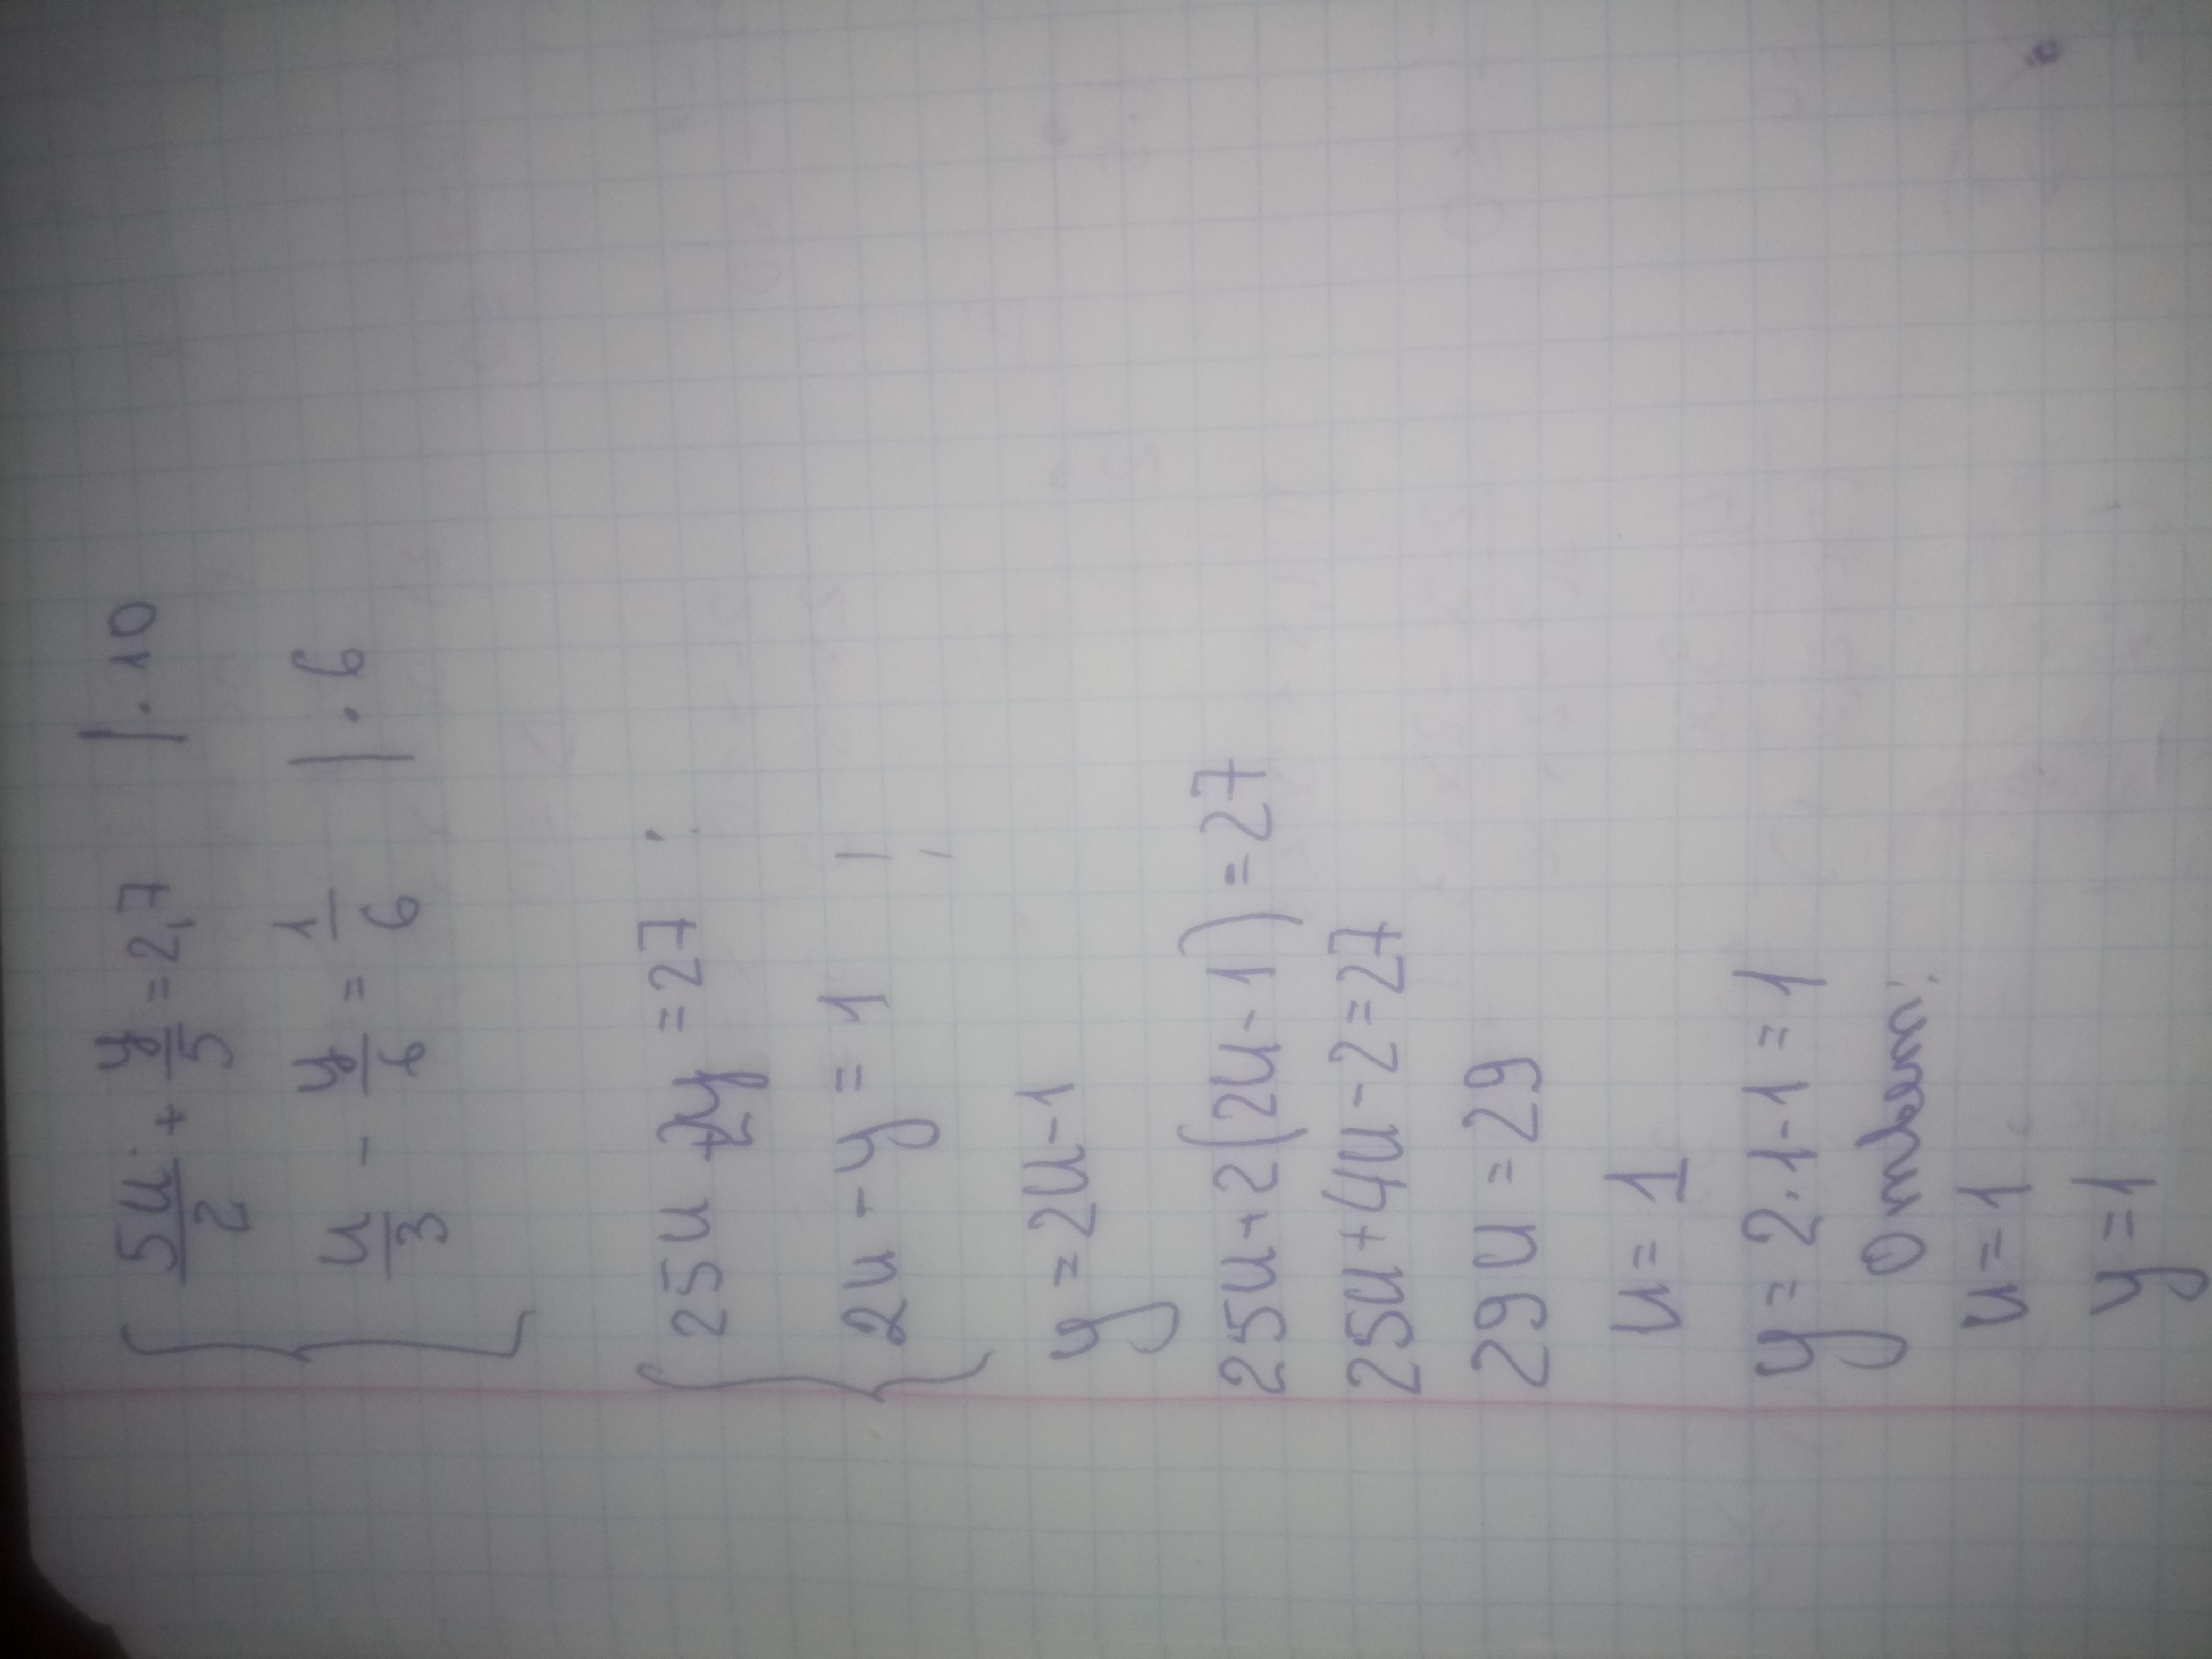 5u/2 + y/5 = 2,7 | · 10
u/3 - y/6 = 1/6 | · 6
25u + 2y = 27
2u - y = 1
y = 2u - 1
25u + 2(2u - 1) = 27
25u + 4u - 2 = 27
29u = 29
u = 1
y = 2 · 1 - 1 = 1
Ответ:
u = 1
y = 1